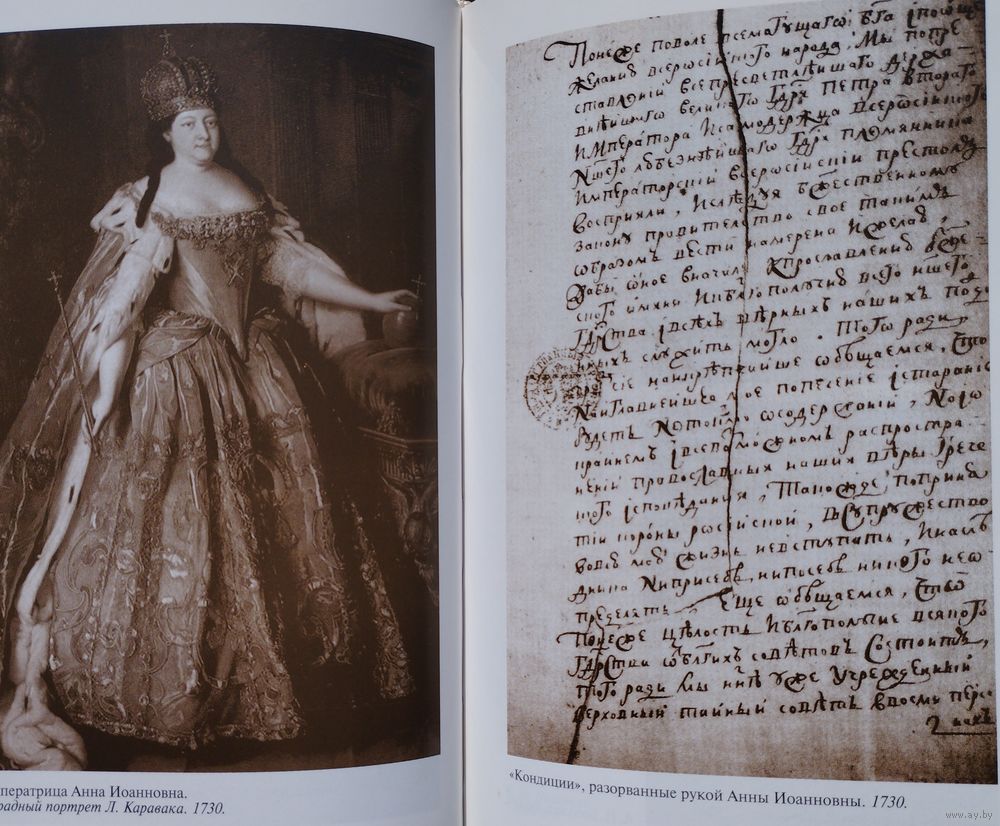 ператрица Анна Иоанновна.
радный портрет Л. Каравака. 1730.
Понеже по воле всемагущаго бга і по обще
желанию всеросиского народа, мы по пре
ставлениі всепресветлѣишаго держа
внѣишаго великого гдря Петра втораго
императора и самодержца всеросиского
ншего любезнѣишаго гдря племянника
императорскиі всеросискиі престолъ
восприяли, и слѣдуя бжественному
закону правительство свое такимъ
образомъ вести намерена и желаю,
дабы оное вначале к прославлению бже
ского имяни и к блгополучию всего ншего
гдрства і всехъ вѣрныхъ наших подда
нныхъ служить могло. Того ради,
чрез сие наикрѣпчаише обѣщаемся, что
наиглавнейшее мое попечение і старание
будетъ не токмо о содержаниі, но и о
крайнем і всевозможном распростра
нениі православныя нашея вѣры грече
ского ісповѣдания, такожде по приня
тиі короны росиской, в супружество
во всю мою жизнь не вступать, и наслѣ
дника ни при себѣ, ни по себѣ никого не о
пределять. Еще обѣщаемся, что
понеже цѣлость и блгополучие всякого
гдрства от блгихъ совѣтовъ состоитъ,
того ради мы ннѣ уже учрежденный
верховный тайный совѣтъ в восми персо
нахъ
«Кондиции», разорванные рукой Анны Иоанновны. 1730.
www.ay.by